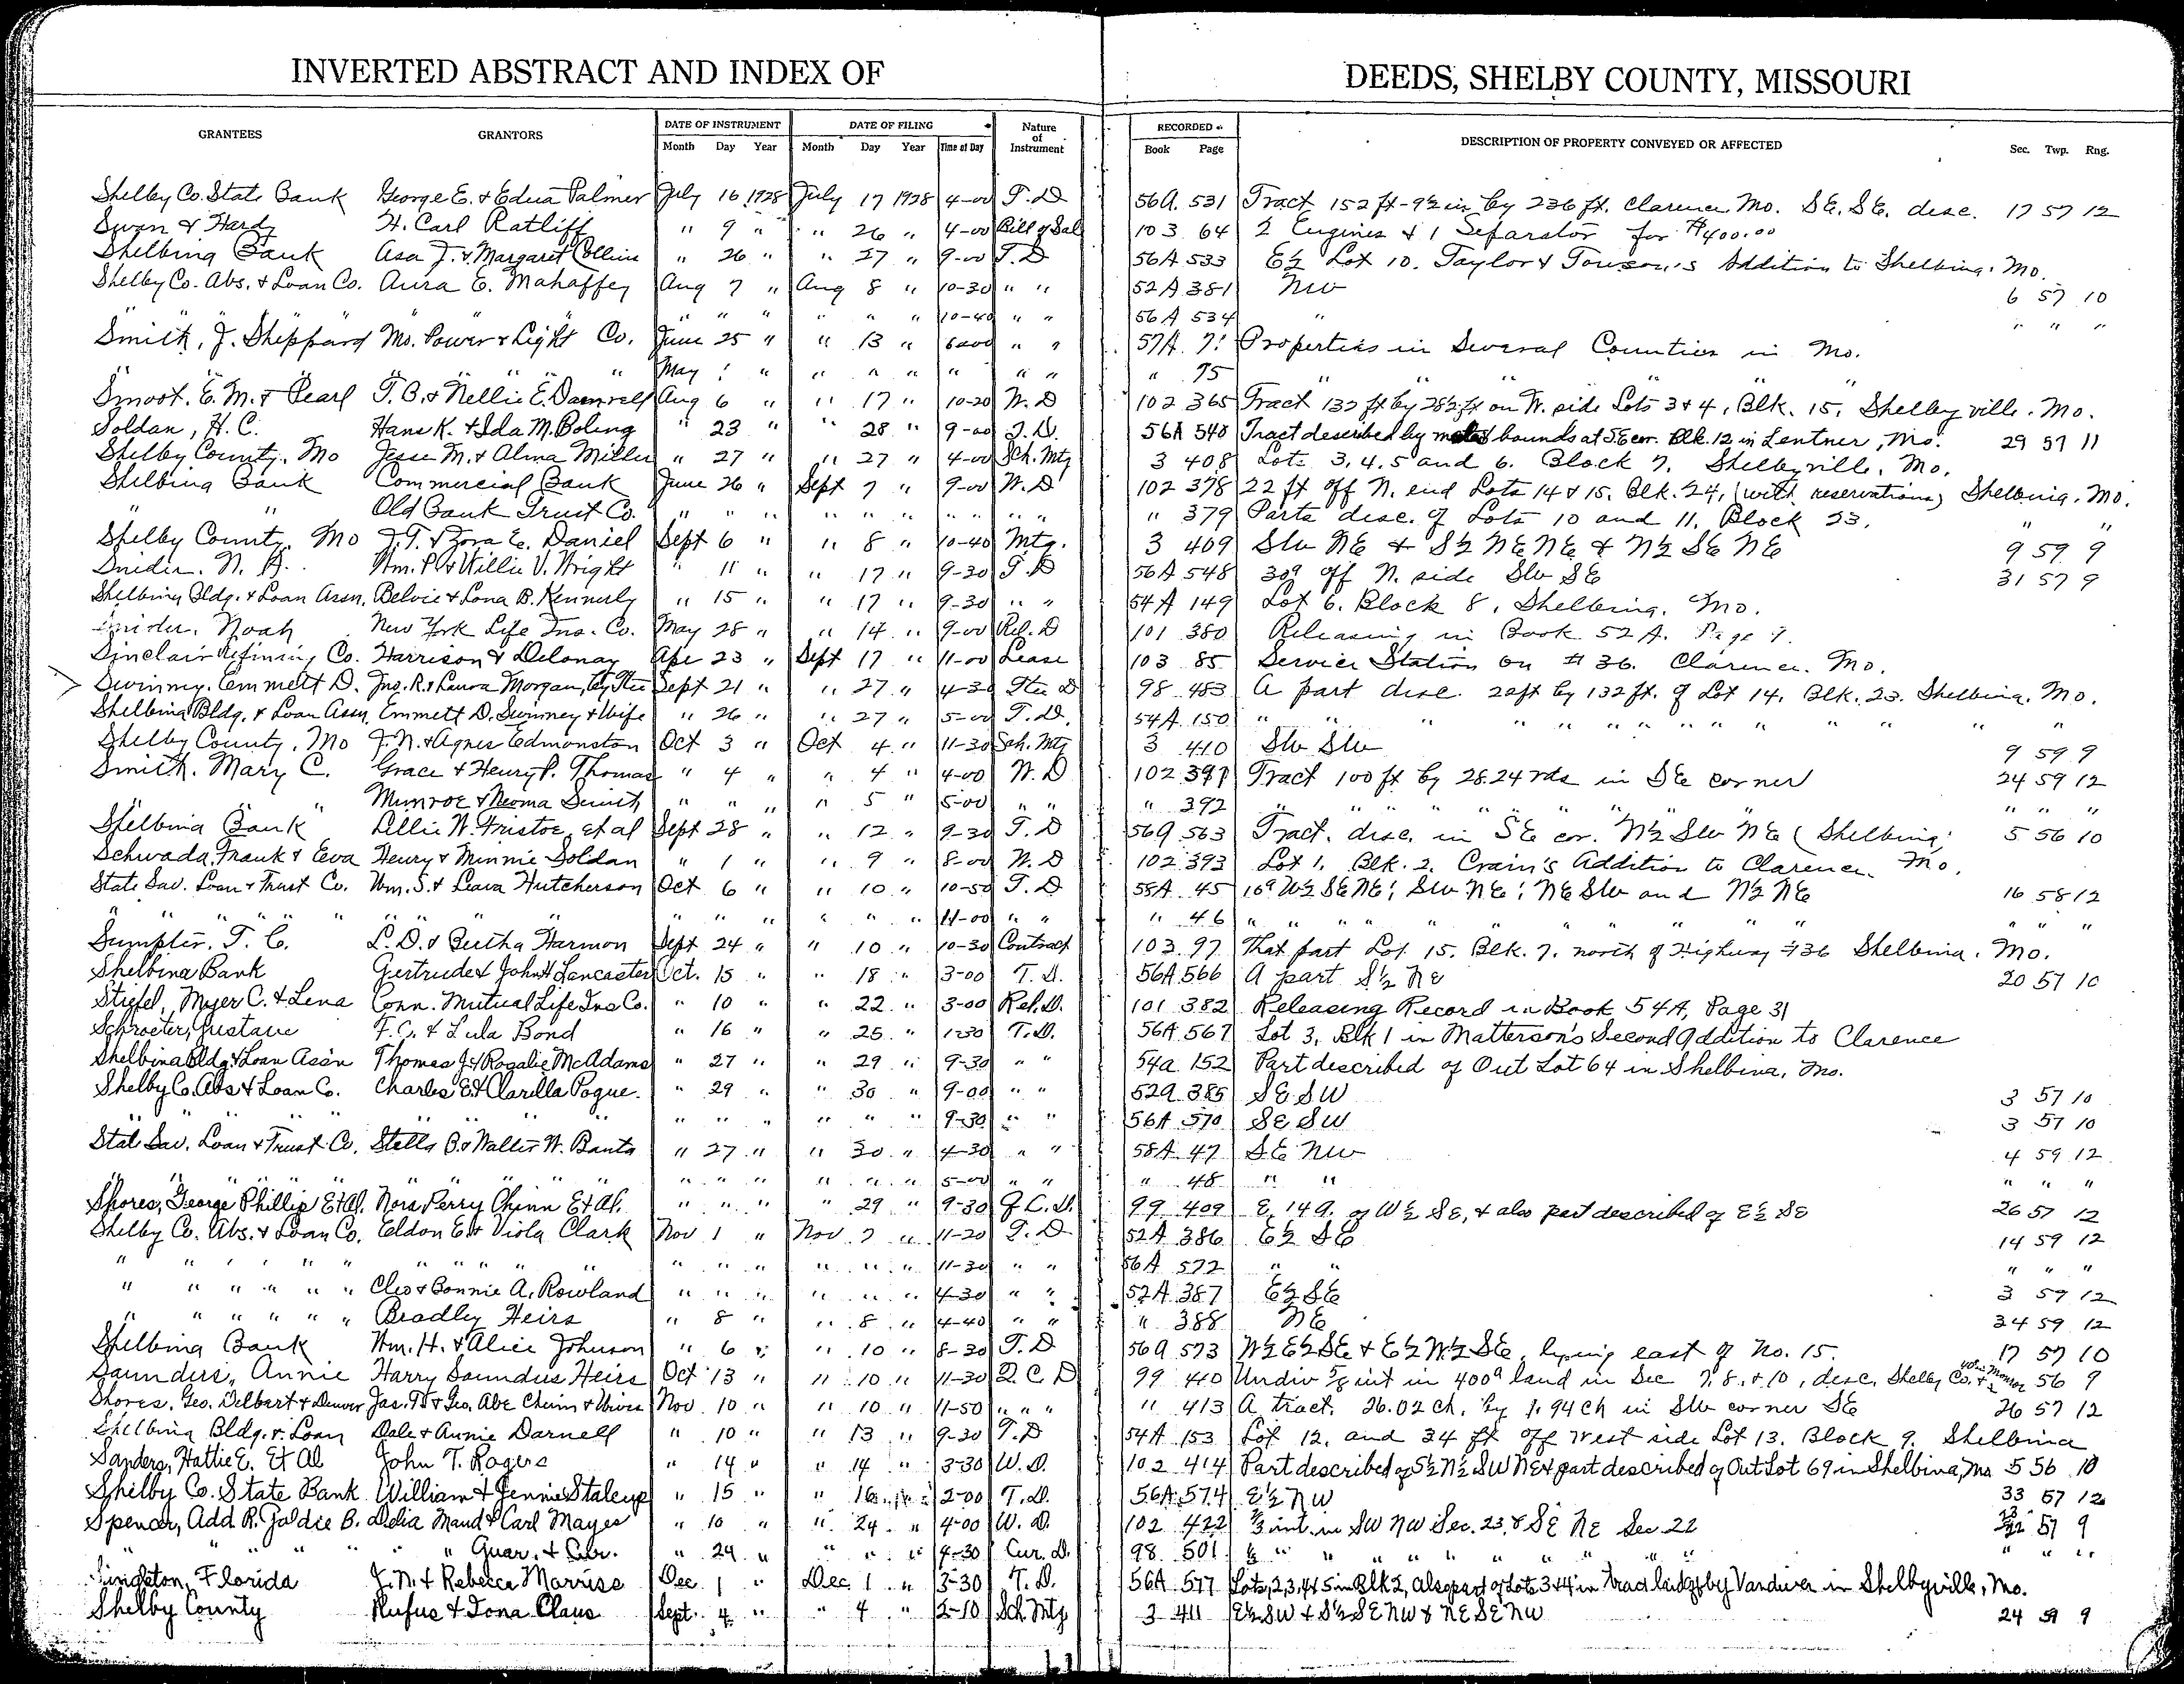 INVERTED ABSTRACT AND INDEX OF DEEDS, SHELBY COUNTY, MISSOURI
GRANTEES GRANTORS DATE OF INSTRUMENT Month Day Year DATE OF FILING Month Day Year Time of Day Nature of Instrument RECORDED Book Page DESCRIPTION OF PROPERTY CONVEYED OR AFFECTED Sec. Twp. Rng.
Shelby Co. State Bank George E. & Edna Palmer July 16 1928 July 17 1928 4-00 T.D 56A 531 Tract 152 ft-9½ in by 236 ft. Clarence Mo. SE. SE. desc. 17 57 12
Swan & Hardy H. Carl Ratliff " 9 " " 26 " 4-00 Bill of Sal 103 64 2 Engines & 1 Separator for $400.00
Shelbina Bank Asa J. & Margaret Collins " 26 " " 27 " 9-00 T.D 56A 533 E½ Lot 10. Taylor & Towson's Addition to Shelbina, Mo.
Shelby Co. Abs. & Loan Co. Aura E. Mahaffey Aug 7 " Aug 8 " 10-30 " " 52A 381 NW 6 57 10
" " " " " " 10-40 " " 56A 534 " " " "
Smith, J. Sheppard Mo. Power & Light Co. June 25 " " 13 " " " 57A Properties in Several Counties in Mo.
" " " May " " " " " " " " 75 " " " "
Smoot. E. M. & Pearl T. B. & Nellie E. Damrell Aug 6 " " 17 " 10-20 W.D 102 365 Tract 132 ft by 28½ ft on W. side Lots 3 & 4, Blk. 15, Shelbyville. Mo.
Soldan, H. C. Hans K. & Ida M. Boling " 23 " " 28 " 9-00 T.D. 56A 540 Tract described by metes & bounds at S.E. cor. Blk. 12 in Lentner, Mo. 29 57 11
Shelby County, Mo Jesse M. & Alma Miller " 27 " " 27 " 4-00 Sch. Mtg 3 408 Lots 3, 4, 5 and 6. Block 7. Shelbyville, Mo.
Shelbina Bank Commercial Bank June 26 " Sept 7 " 9-00 W.D 102 378 22 ft off N. end Lots 14 & 15. Blk. 24, (with reservations) Shelbina, Mo.
" " Old Bank Trust Co. " " " " " " " " " " " 379 Parts desc. of Lots 10 and 11, Block 23. " "
Shelby County, Mo J. T. & Zora E. Daniel Sept 6 " " 8 " 10-40 Mtg. 3 409 SW NE & S½ NE NE & N½ SE NE 9 59 9
Snider. N. A. Wm. P. & Willie V. Wright " 11 " " 17 " 9-30 T.D 56A 548 30a off N. side SW SE 31 57 9
Shelbina Bldg. & Loan Assn. Belvie & Lona B. Kennerly " 15 " " 17 " 9-30 " " 54A 149 Lot 6, Block 8, Shelbina, Mo.
Snider, Noah New York Life Ins. Co. May 28 " " 14 " 9-00 Rel. D 101 380 Releasing in Book 52A. Page 7.
Sinclair Refining Co. Harrison & Delonay Apr 23 " Sept 17 " 11-00 Lease 103 85 Service Station on #36. Clarence. Mo.
Swinney. Emmett D. Jno. R. & Laura Morgan, by Ttee Sept 21 " " 27 " 4-30 Ttee D 98 483 A part desc. 20 ft by 132 ft. of Lot 14, Blk. 23. Shelbina, Mo.
Shelbina Bldg. & Loan Assn, Emmett D. Swinney & Wife " 26 " " 27 " 5-00 T.D. 54A 150 " " " " " " " " " " " " "
Shelby County, Mo J. N. & Agnes Edmonston Oct 3 " Oct 4 " 11-30 Sch. Mtg 3 410 SW SW 9 59 9
Smith. Mary C. Grace & Henry P. Thomas " 4 " " 4 " 4-00 W.D 102 391 Tract 100 ft by 28.24 rds in SE corner 24 59 12
" " Munroe & Neoma Smith " " " " 5 " 5-00 " " " 392 " " " " " " " " " " "
Shelbina Bank Lillie W. Fristoe, et al Sept 28 " " 12 " 9-30 T.D 56A 563 Tract. desc. in SE cor. N½ SW NE (Shelbina) 5 56 10
Schwada, Frank & Eva Henry & Minnie Soldan " 1 " " 9 " 8-00 W.D 102 393 Lot 1, Blk. 2. Crain's Addition to Clarence, Mo.
State Sav. Loan & Trust Co. Wm. S. & Leava Hutcherson Oct 6 " " 10 " 10-50 T.D 58A 45 10a W½ SE NE; SW NE; NE SW and N½ NE 16 58 12
" " " " " " " " " " " " 11-00 " " " 46 " " " " " " " " " " "
Sumpter. T. C. L. D. & Bertha Harmon Sept 24 " " 10 " 10-30 Contract 103 97 That part Lot 15. Blk. 7. north of Highway #36 Shelbina, Mo.
Shelbina Bank Gertrude & John H Lancaster Oct. 15 " " 18 " 3-00 T.D. 56A 566 A part S½ NE 20 57 10
Stiefel, Myer C. & Lena Conn. Mutual Life Ins Co. " 10 " " 22 " 3-00 Rel. D. 101 382 Releasing Record in Book 54A, Page 31
Schroeter, Gustave F. C. & Lula Bond " 16 " " 25 " 1-30 T.D. 56A 567 Lot 3, Blk 1 in Matterson's Second Addition to Clarence
Shelbina Bldg. & Loan Ass'n Thomas J. & Rosalie McAdams " 27 " " 29 " 9-30 " " 54a 152 Part described of Out Lot 64 in Shelbina, Mo.
Shelby Co. Abs & Loan Co. Charles E. & Clarella Pogue. " 29 " " 30 " 9-00 " " 52a 385 SE SW 3 57 10
" " " " " " " " " " 9-30 " " 56A 570 SE SW 3 57 10
Stat Sav. Loan & Trust Co. Stella B. & Walter W. Banta " 27 " " 30 " 4-30 " " 58A 47 SE NW 4 59 12
" " " " " " " " " " " " 5-00 " " " 48 " " " " "
Shores, George Phillip Et Al. Nora Perry Chinn Et Al. " " " " 29 " 9-30 Q.C.D. 99 409 E. 14a. of W½ SE, & also part described of E½ SE 26 57 12
Shelby Co. Abs. & Loan Co. Eldon E. & Viola Clark Nov 1 " Nov. 7 " 11-20 T.D 52A 386 E½ SE 14 59 12
" " " " " " " " " " " " " " " " " 11-30 " " 56A 572 " " " " "
" " " " " " Cleo & Bonnie A. Rowland " " " " " " 4-30 " " 52A 387 E½ SE 3 59 12
" " " " " " Bradley Heirs " 8 " " 8 " 4-40 " " " 388 NE 34 59 12
Shelbina Bank Wm. H. & Alice Johnson " 6 " " 10 " 8-30 T.D 56A 573 W½ E½ SE & E½ W½ SE, lying east of No. 15. 17 57 10
Saunders, Annie Harry Saunders Heirs Oct 13 " " 10 " 11-30 Q.C.D 99 410 Undiv ⅝ int in 400a land in Sec 7, 8, & 10, desc. Shelby Co. & Monroe 56 9
Shores, Geo. Delbert & Denver Jas. T. & Geo. Abe Chinn & Wives Nov. 10 " " 10 " 11-50 " " " " 413 A tract. 26.02 ch. by 1.94 ch in SW corner SE 26 57 12
Shelbina Bldg. & Loan Dale & Annie Darnell " 10 " " 13 " 9-30 T.D 54A 153 Lot 12, and 34 ft off West side Lot 13. Block 9. Shelbina
Sanders, Hattie E. Et Al John T. Rogers " 14 " " 14 " 3-30 W.D. 102 414 Part described of S½ N½ SW NE & part described of Out Lot 69 in Shelbina, Mo 5 56 10
Shelby Co. State Bank William & Jennie Staleup " 15 " " 16 " 2-00 T.D. 56A 574 E½ NW 33 57 12
Spencer, Add. R. Goldie B. Delia Maud & Carl Mayes " 10 " " 24 " 4-00 W.D. 102 422 int. in SW NW Sec. 23, & SE NE Sec 22 23 22 57 9
" " " " " Guar. & Cur. " 24 " " " " 4-30 Cur. D. 98 501 " " " " " " " " " " "
Singleton, Florida J. N. & Rebecca Morriss Dec. 1 " Dec. 1 " 3-30 T.D. 56A 577 Lots 1, 2, 3, 4 & 5 in Blk 2, also part of Lots 3 & 4 in tract laid off by Vandiver in Shelbyville, Mo.
Shelby County Rufus & Iona Claus Sept. 4 " " 4 " 2-10 Sch. Mtg 3 411 E½ SW & S½ SE NW & NE SE NW 24 59 9